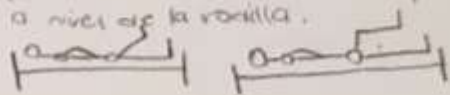 a nivel de la rodilla.